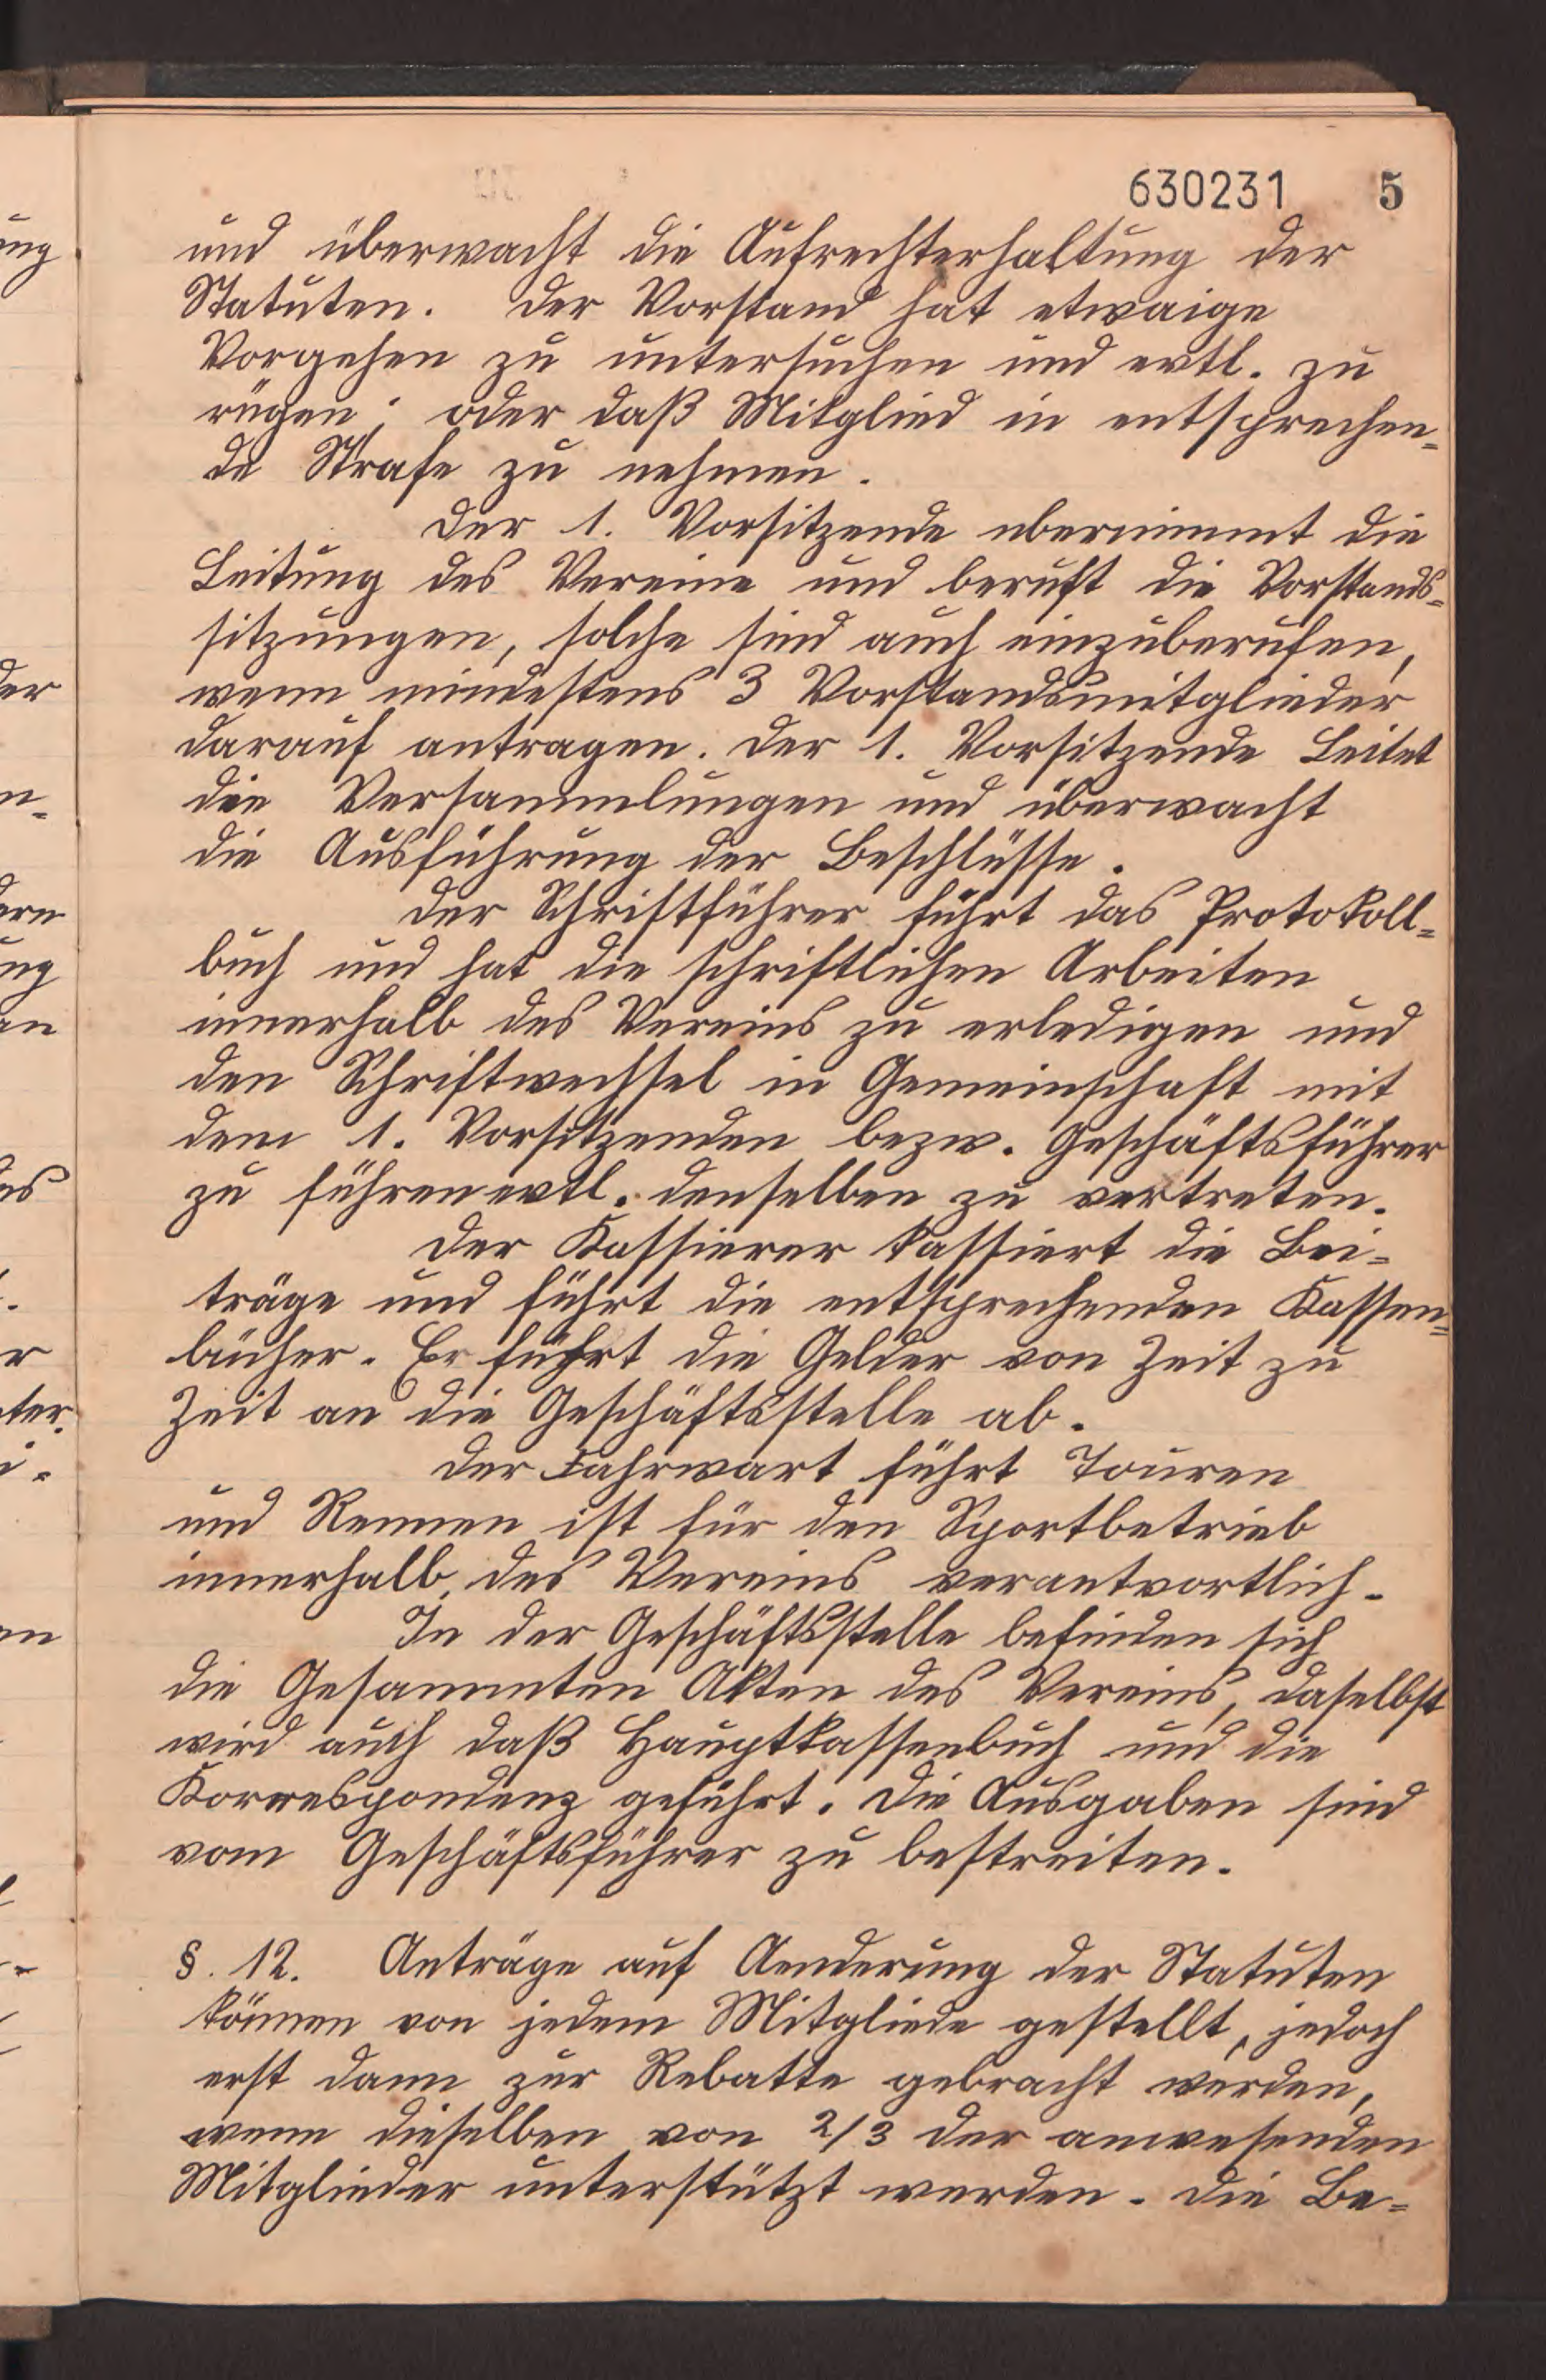 630231 5
und überwacht die Aufrechterhaltung der
Statuten. Der Vorstand hat etwaige
Vorgehen zu untersuchen und evtl. zu
rügen; oder daß Mitglied in entsprechen=
de Strafe zu nehmen.
Der 1. Vorsitzende ubernimmt die
Leitung des Vereins und beruft die Vorstands=
sitzungen, solche sind auch einzuberufen,
wenn mindestens 3 Vorstandsmitglieder
darauf antragen. Der 1. Vorsitzende Leitet
die Versammlungen und überwacht
die Ausführung der Beschlüsse.
Der Schriftführer führt das Protokoll=
buch und hat die schriftlichen Arbeiten
innerhalb des Vereins zu erledigen und
den Schriftwechsel in Gemeinschaft mit
dem 1. Vorsitzenden bezw. Geschäftsführer
zu führen evtl. denselben zu vertreten.
Der Kassierer kassiert die Bei=
träge und führt die entsprechenden Kassen=
bücher. Er führt die Gelder von Zeit zu
Zeit an die Geschäftsstelle ab.
Der Fahrwart führt Touren
und Rennen ist für den Sportbetrieb
innerhalb des Vereins verantwortlich.
In der Geschäftsstelle befinden sich
die Gesammten Akten des Vereins, daselbst
wird auch daß Hauptkassenbuch und die
Korrespondenz geführt. Die Ausgaben sind
vom Geschäftsführer zu bestreiten.
§. 12. Anträge auf Aenderung der Statuten
können von jedem Mitgliede gestellt, jedoch
erst dann zur Rebatte gebracht werden,
wenn dieselben von 2/3 der anwesenden
Mitglieder unterstützt werden. Die Be=